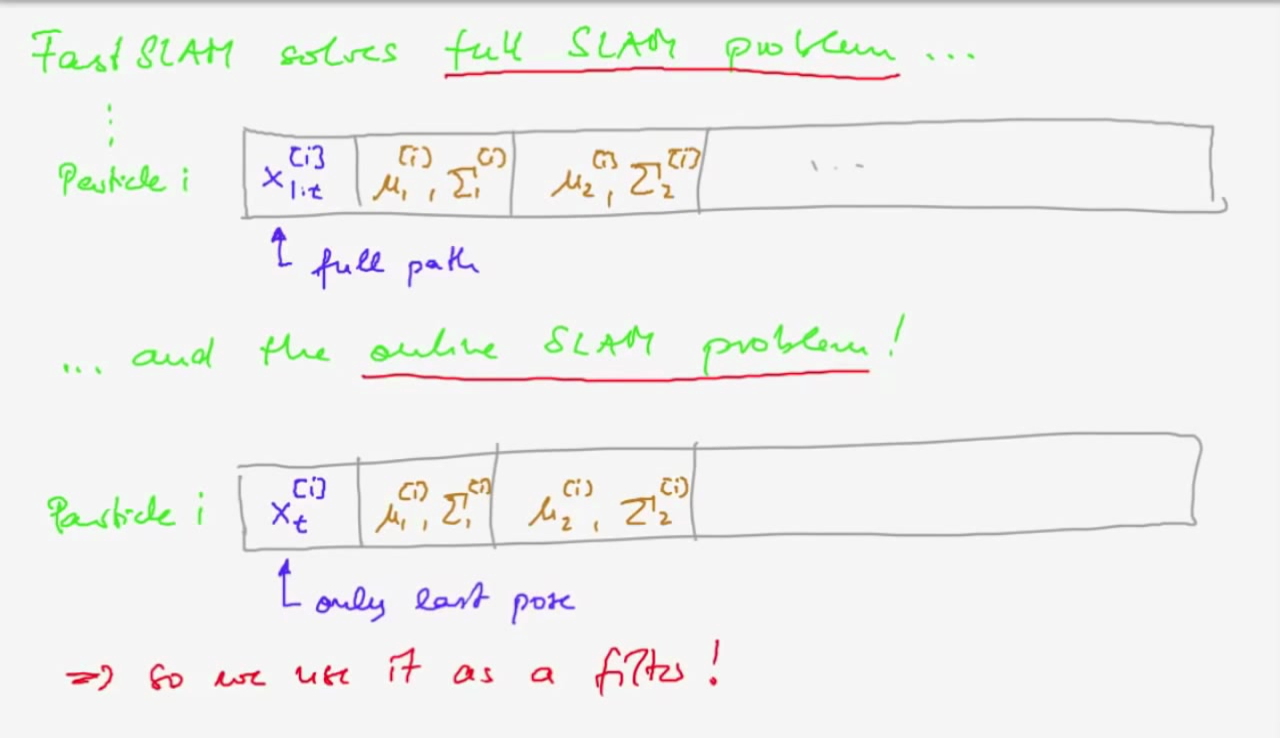 FastSLAM solves full SLAM problem ...
Particle i x_{1:t}^{[i]} μ_1^{[i]}, Σ_1^{[i]} μ_2^{[i]}, Σ_2^{[i]} ...
full path
... and the online SLAM problem!
Particle i x_t^{[i]} μ_1^{[i]}, Σ_1^{[i]} μ_2^{[i]}, Σ_2^{[i]}
only last pose
=> so we use it as a filter!